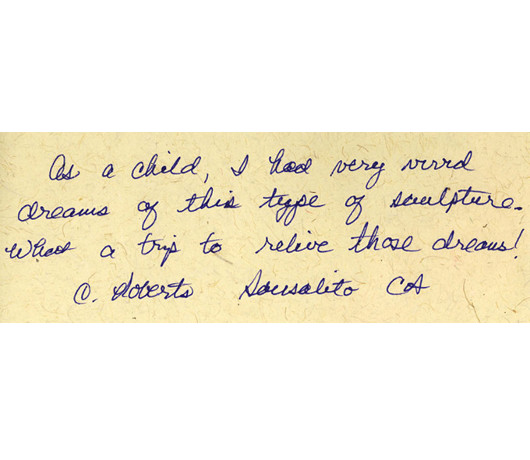 As a child, I had very vivid
dreams of this type of sculpture.
What a trip to relive those dreams!
C. Roberts Sausalito CA